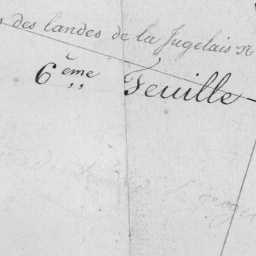 des landes de la Jugelais N
6ème Feuille